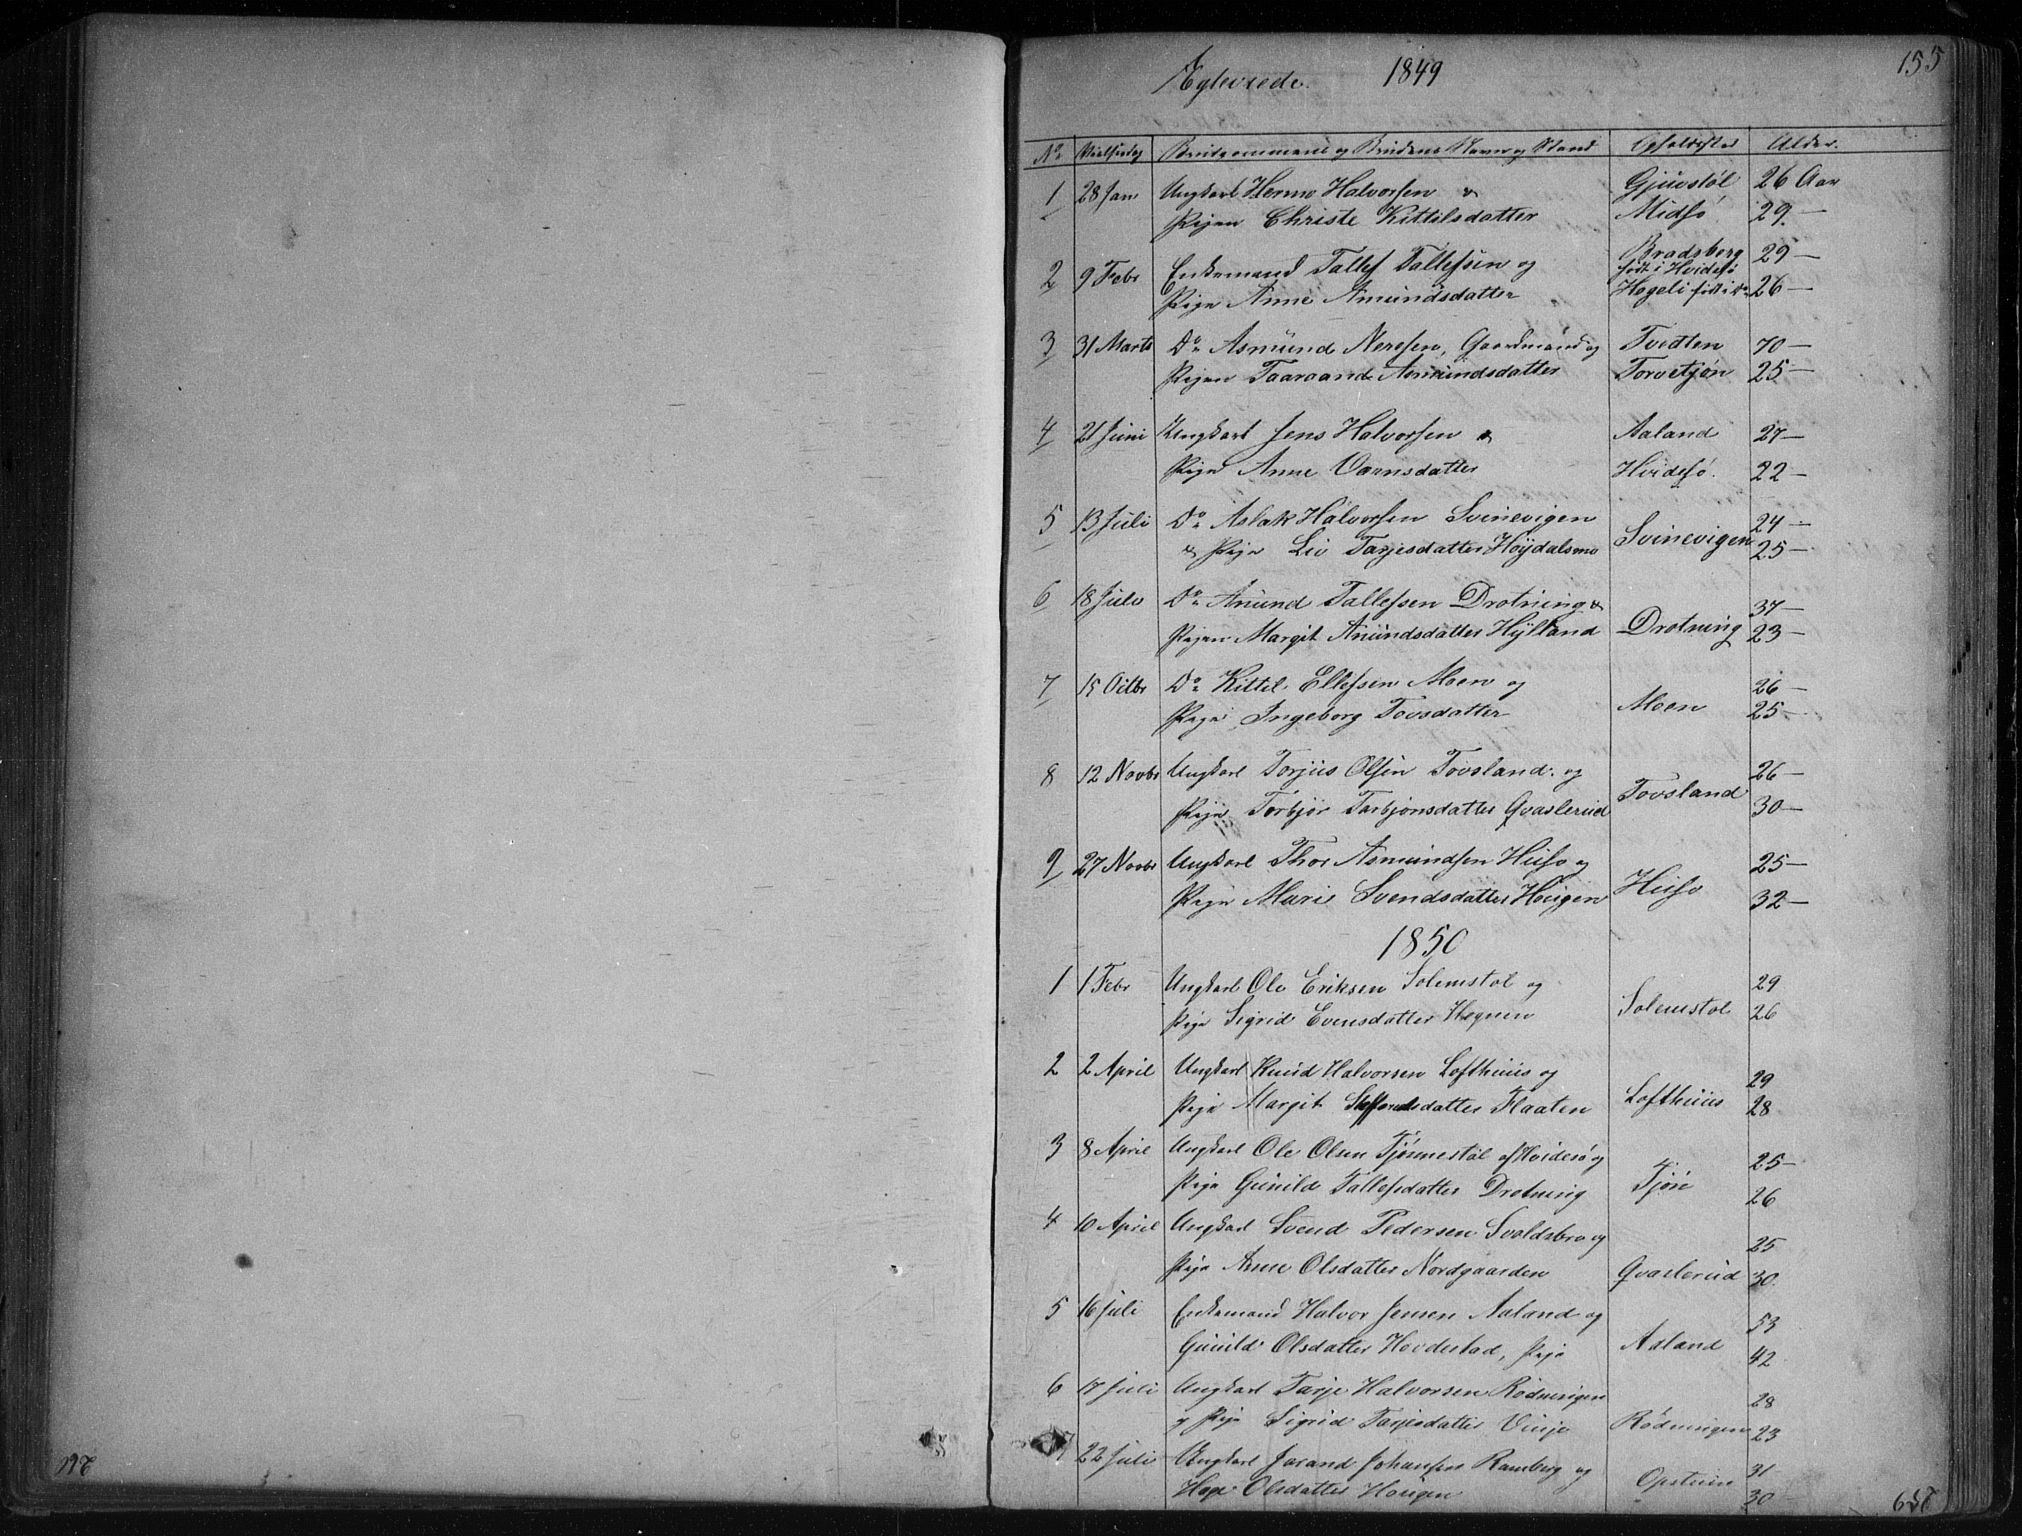 155
Ægteviede. 1849
No Vielsesdag Brudgommens og Brudens Navn og Stand Opholdssted Alder.
1 28 Jan Ungkarl Hermo Halvorsen & Gjuvstøl 26 Aar
Pigen Christe Kittilsdatter Midbø 29 —
2 9 Febr Enkemand Tallef Tallefsen og Bradsberg 29 —
født i Hvidesø
Pige Anne Amundsdatter Hegeli født i do 26 —
3 31 Marts Do Asmund Neresen, Gaardmand og Tvedten 70 —
Pigen Taaraand Asmundsdatter Torvetjøn 25 —
4 21 Juni Ungkarl Jens Halvorsen & Aaland 27 —
Pige Anne Vaernsdatter Hvidesø. 22 —
5 13 Juli Do Aslak Halvorsen Svinevigen 24 —
& Pige Liv Tarjesdatter Høydalsmo Svinevigen 25 —
6 18 Juli Do Anund Tallefsen Drotning & 37 —
Pigen Margit Anundsdatter Hylland Drotning 23 —
7 15 Octbr Do Kittil Ellefsen Moen og 26 —
Pige Ingeborg Tovsdatter Moen 25 —
8 12 Novbr Ungkarl Torjus Olsen Tovsland og 26 —
Pige Torbjør Tarbjønsdatter Qvaslerud Tovsland 30 —
9 27 Novbr Ungkarl Thor Asmundsen Huso og 25 —
Pige Marie Svendsdatter Hougen Huso 32 —
1850
1 1 Febr Ungkarl Ole Eriksen Solemstøl og 29
Pige Sigrid Evensdatter Hegnin Solemstøl 26
2 2 April Ungkarl Knud Halvorsen Lofthuus og 29
Pige Margit Steffensdatter Flaaten Lofthuus 28
3 8 April Ungkarl Ole Olsen Tjønnestøl af Hvidesø og 25 —
Pige Gunild Tallefsdatter Drotning Tjøn 26
4 10 April Ungkarl Svend Pedersen Svoldsbro og 25
Pige Anne Olsdatter Nordgaarden Qvaslerud 30
5 16 Juli Enkemand Halvor Jensen Aaland og 53
Gunild Olsdatter Hovdestad, Pige Aaland 42
6 17 Juli Ungkarl Tarje Halvorsen Rødningen 28
og Pige Sigrid Tarjesdatter Vinje Rødningen 23
7 22 Juli Ungkarl Jorand Johansen Ramberg og 31
Hæge Olsdatter Hougen Opsteen 30